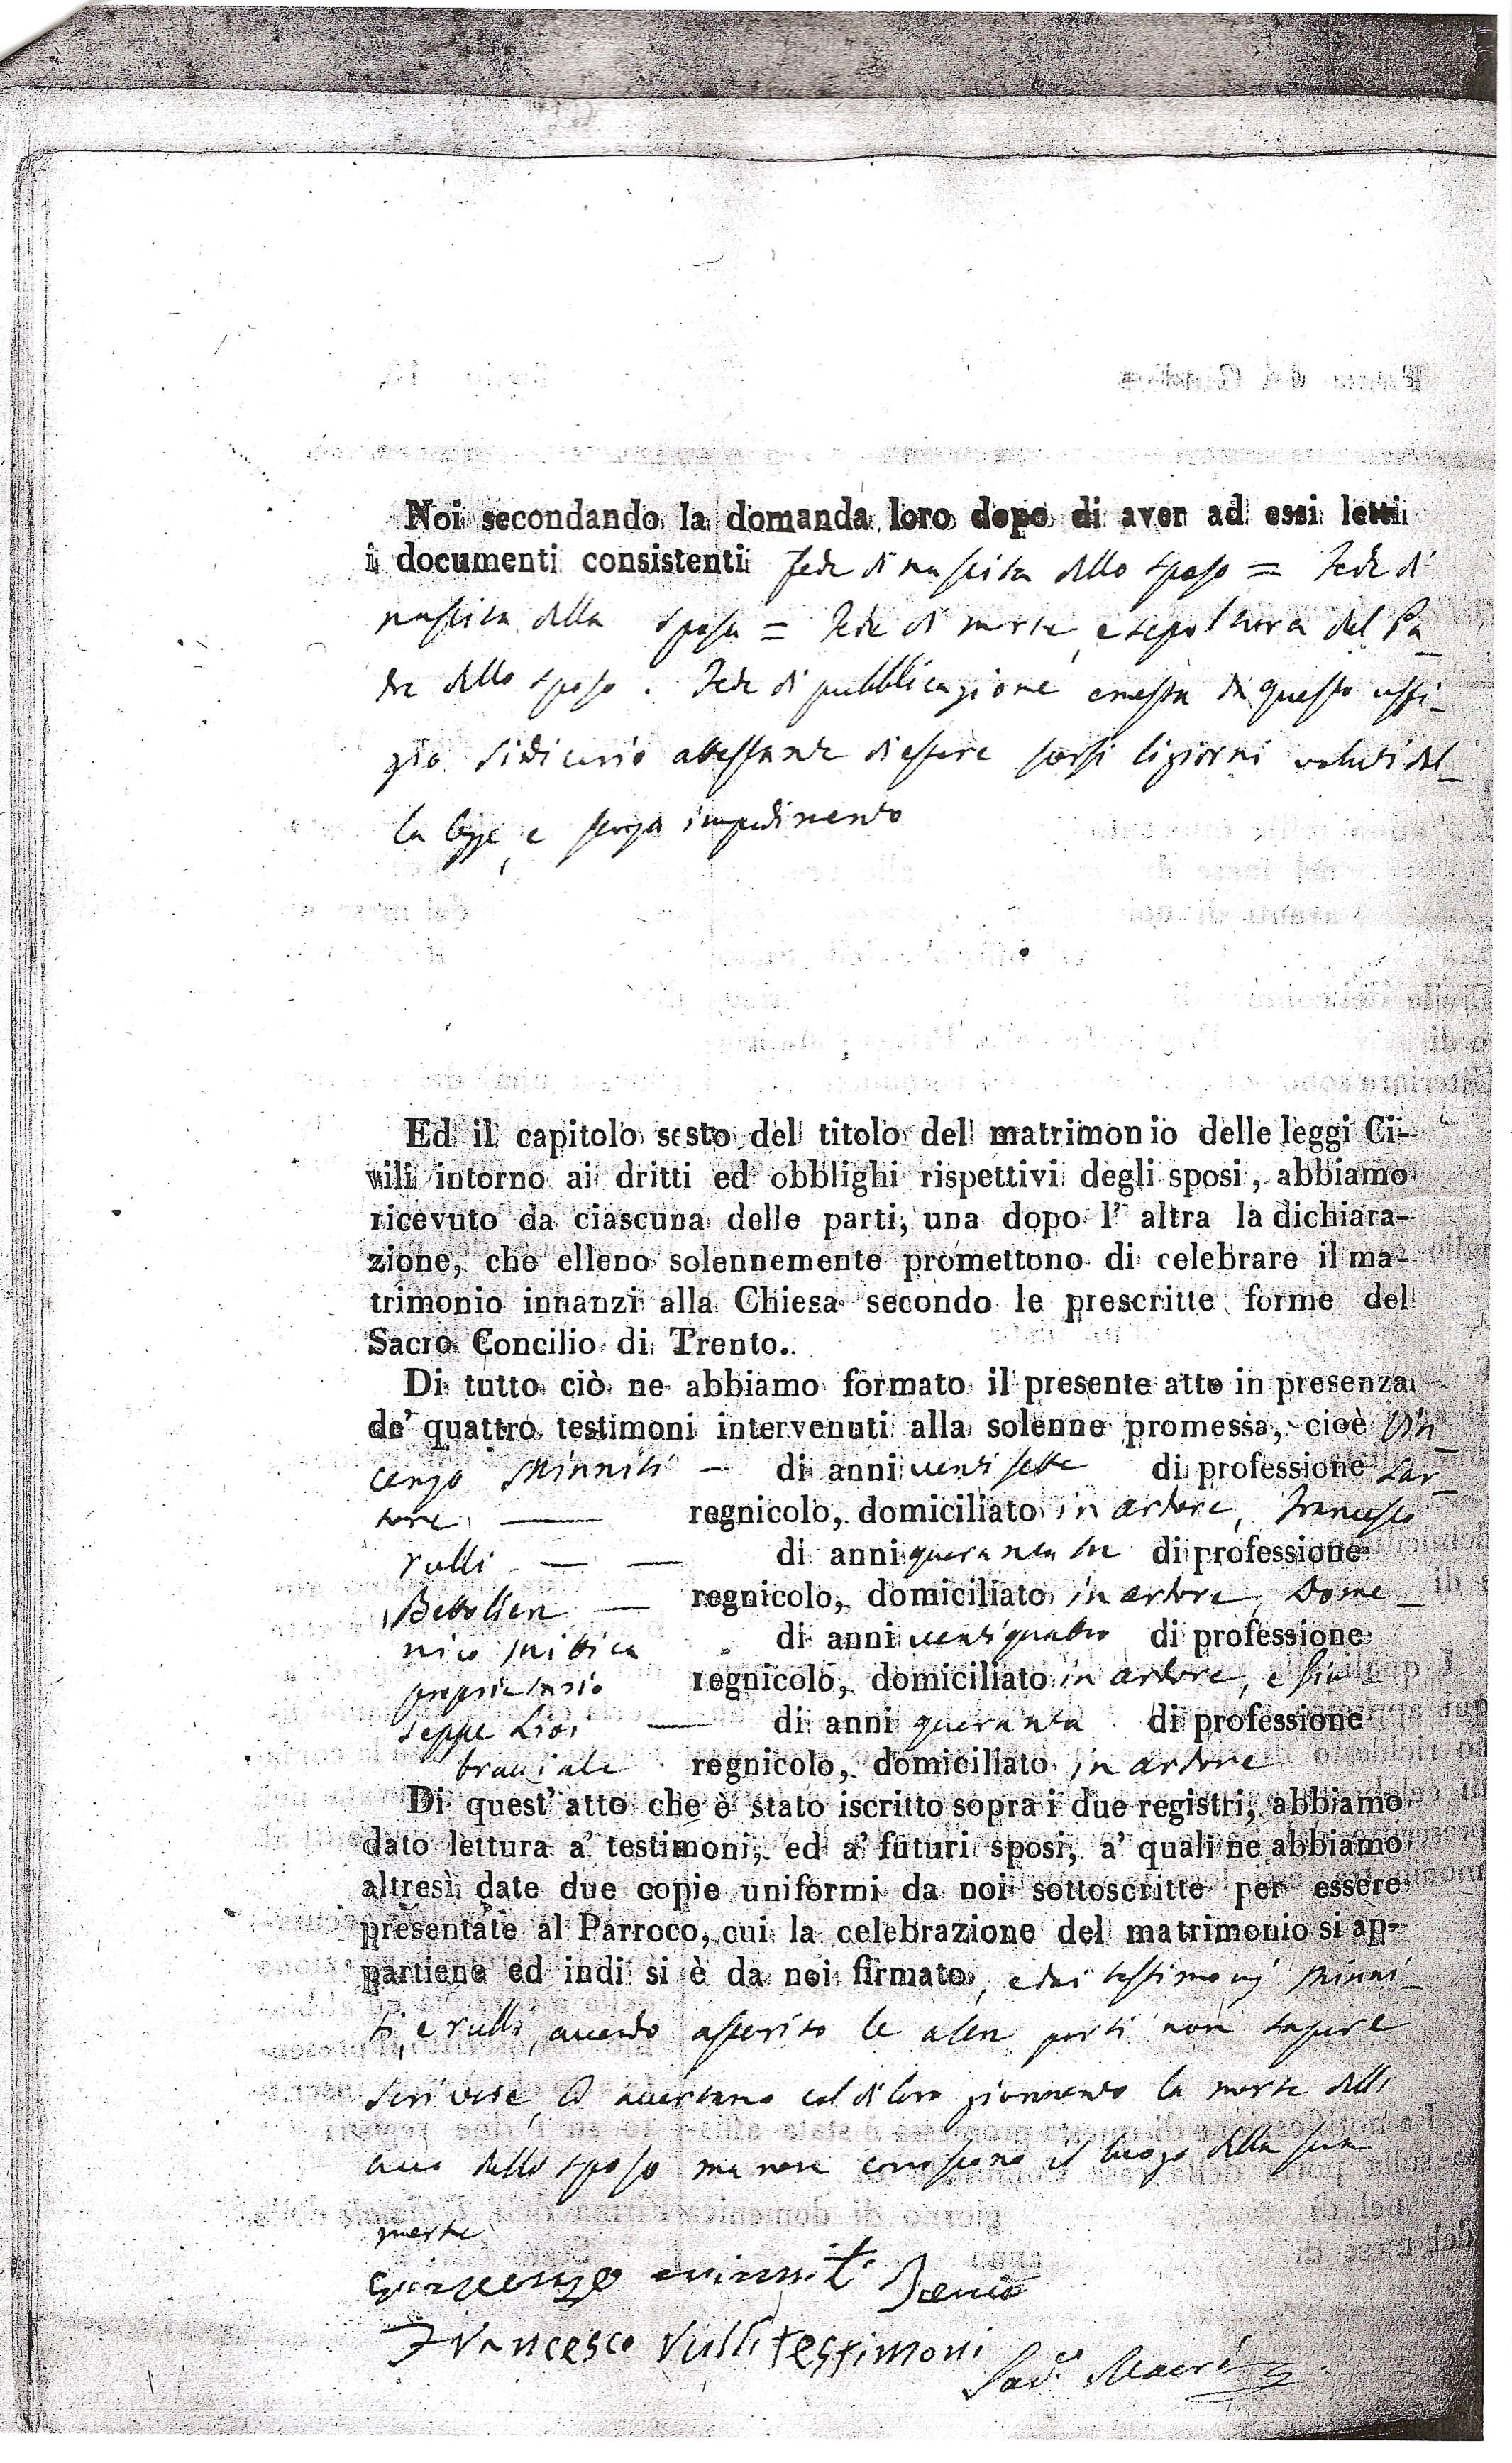 Noi secondando la domanda loro dopo di aver ad essi letti
i documenti consistenti Fede di nascita dello sposo = Fede di
nascita della sposa = Fede di morte, e sepoltura del Pa_
dre dello sposo. Fede di pubblicazione emessa da questo uffi_
zio attestante di essere scorsi li giorni voluti dal_
la legge, e senza impedimento
Ed il capitolo sesto del titolo del matrimonio delle leggi Ci-
vili intorno ai dritti ed obblighi rispettivi degli sposi, abbiamo
ricevuto da ciascuna delle parti, una dopo l' altra la dichiara-
zione, che elleno solennemente promettono di celebrare il ma-
trimonio innanzi alla Chiesa secondo le prescritte forme del
Sacro Concilio di Trento.
Di tutto ciò ne abbiamo formato il presente atto in presenza
de' quattro testimoni intervenuti alla solenne promessa, cioè Vin_
cenzo Minniti — di anni venti sette di professione Sar_
tore — regnicolo, domiciliato in Ardore, Francesco
Rulli — — di anni quaranta tre di professione
Bettoliere — regnicolo, domiciliato in Ardore, Dome_
nico di anni venti quattro di professione
proprietario regnicolo, domiciliato in Ardore, e Giu_
seppe — di anni quaranta di professione
bracciale regnicolo, domiciliato in Ardore
Di quest' atto che è stato iscritto sopra i due registri, abbiamo
dato lettura a' testimoni, ed a' futuri sposi, a' quali ne abbiamo
altresì date due copie uniformi da noi sottoscritte per essere
presentate al Parroco, cui la celebrazione del matrimonio si ap-
partiene ed indi si è da noi firmato, e dai testimonj Minni_
ti, e Rulli, avendo asserito le altre parti non sapere
scrivere, ed accertano col di loro giuramento la morte dell'
avo dello sposo ma non conoscono il luogo della sua
morte
Vincenzo Minniti
Francesco Rulli testimoni
Sav.e Macrì